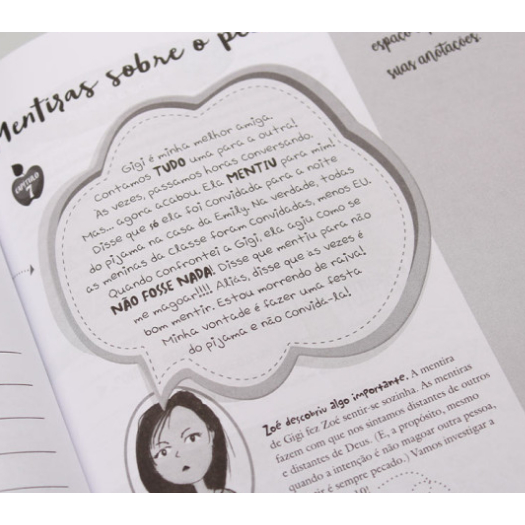 Mentiras sobre o
espaço
suas anotações.
CAPÍTULO
7
Gigi é minha melhor amiga.
Contamos TUDO uma para a outra!
Às vezes, passamos horas conversando.
Mas... agora acabou. Ela MENTIU para mim!
Disse que só ela foi convidada para a noite
do pijama na casa da Emily. Na verdade, todas
as meninas da classe foram convidadas, menos EU.
Quando confrontei a Gigi, ela agiu como se
NÃO FOSSE NADA! Disse que mentiu para não
me magoar!!!! Aliás, disse que às vezes é
bom mentir. Estou morrendo de raiva!
Minha vontade é fazer uma festa
do pijama e não convidá-la!
Zoé descobriu algo importante. A mentira
de Gigi fez Zoé sentir-se sozinha. As mentiras
fazem com que nos sintamos distantes de outros
e distantes de Deus. (E, a propósito, mesmo
quando a intenção é não magoar outra pessoa,
é sempre pecado.) Vamos investigar a